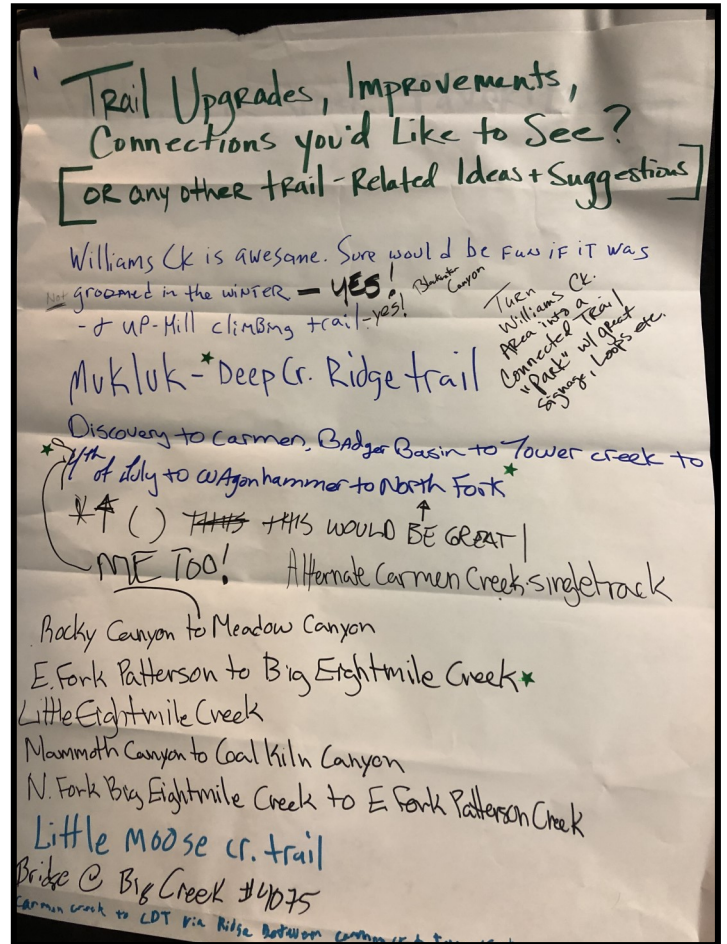 Trail Upgrades, Improvements,
Connections you'd Like to See?
[OR any other trail-Related Ideas + Suggestions]
Williams Ck is awesome. Sure would be Fun if it was
Not groomed in the winter — YES!
- & UP-Hill climbing trail - yes!
Canyon
Turn
Williams Ck.
Area into a
Connected Trail
"Park" w/ great
Signage, Loops etc.
Mukluk - Deep Cr. Ridge trail
Discovery to Carmen, Badger Basin to Tower creek to
4th of July to Wagonhammer to North Fork
*↑ ( ) THIS WOULD BE GREAT!
ME TOO!
Alternate Carmen Creek singletrack
Rocky Canyon to Meadow Canyon
E. Fork Patterson to Big Eightmile Creek
Little Eightmile Creek
Mammoth Canyon to Coal Kiln Canyon
N. Fork Big Eightmile Creek to E Fork Patterson Creek
Little Moose cr. trail
Bridge @ Big Creek #4075
Carmen creek to CDT via Ridge Between